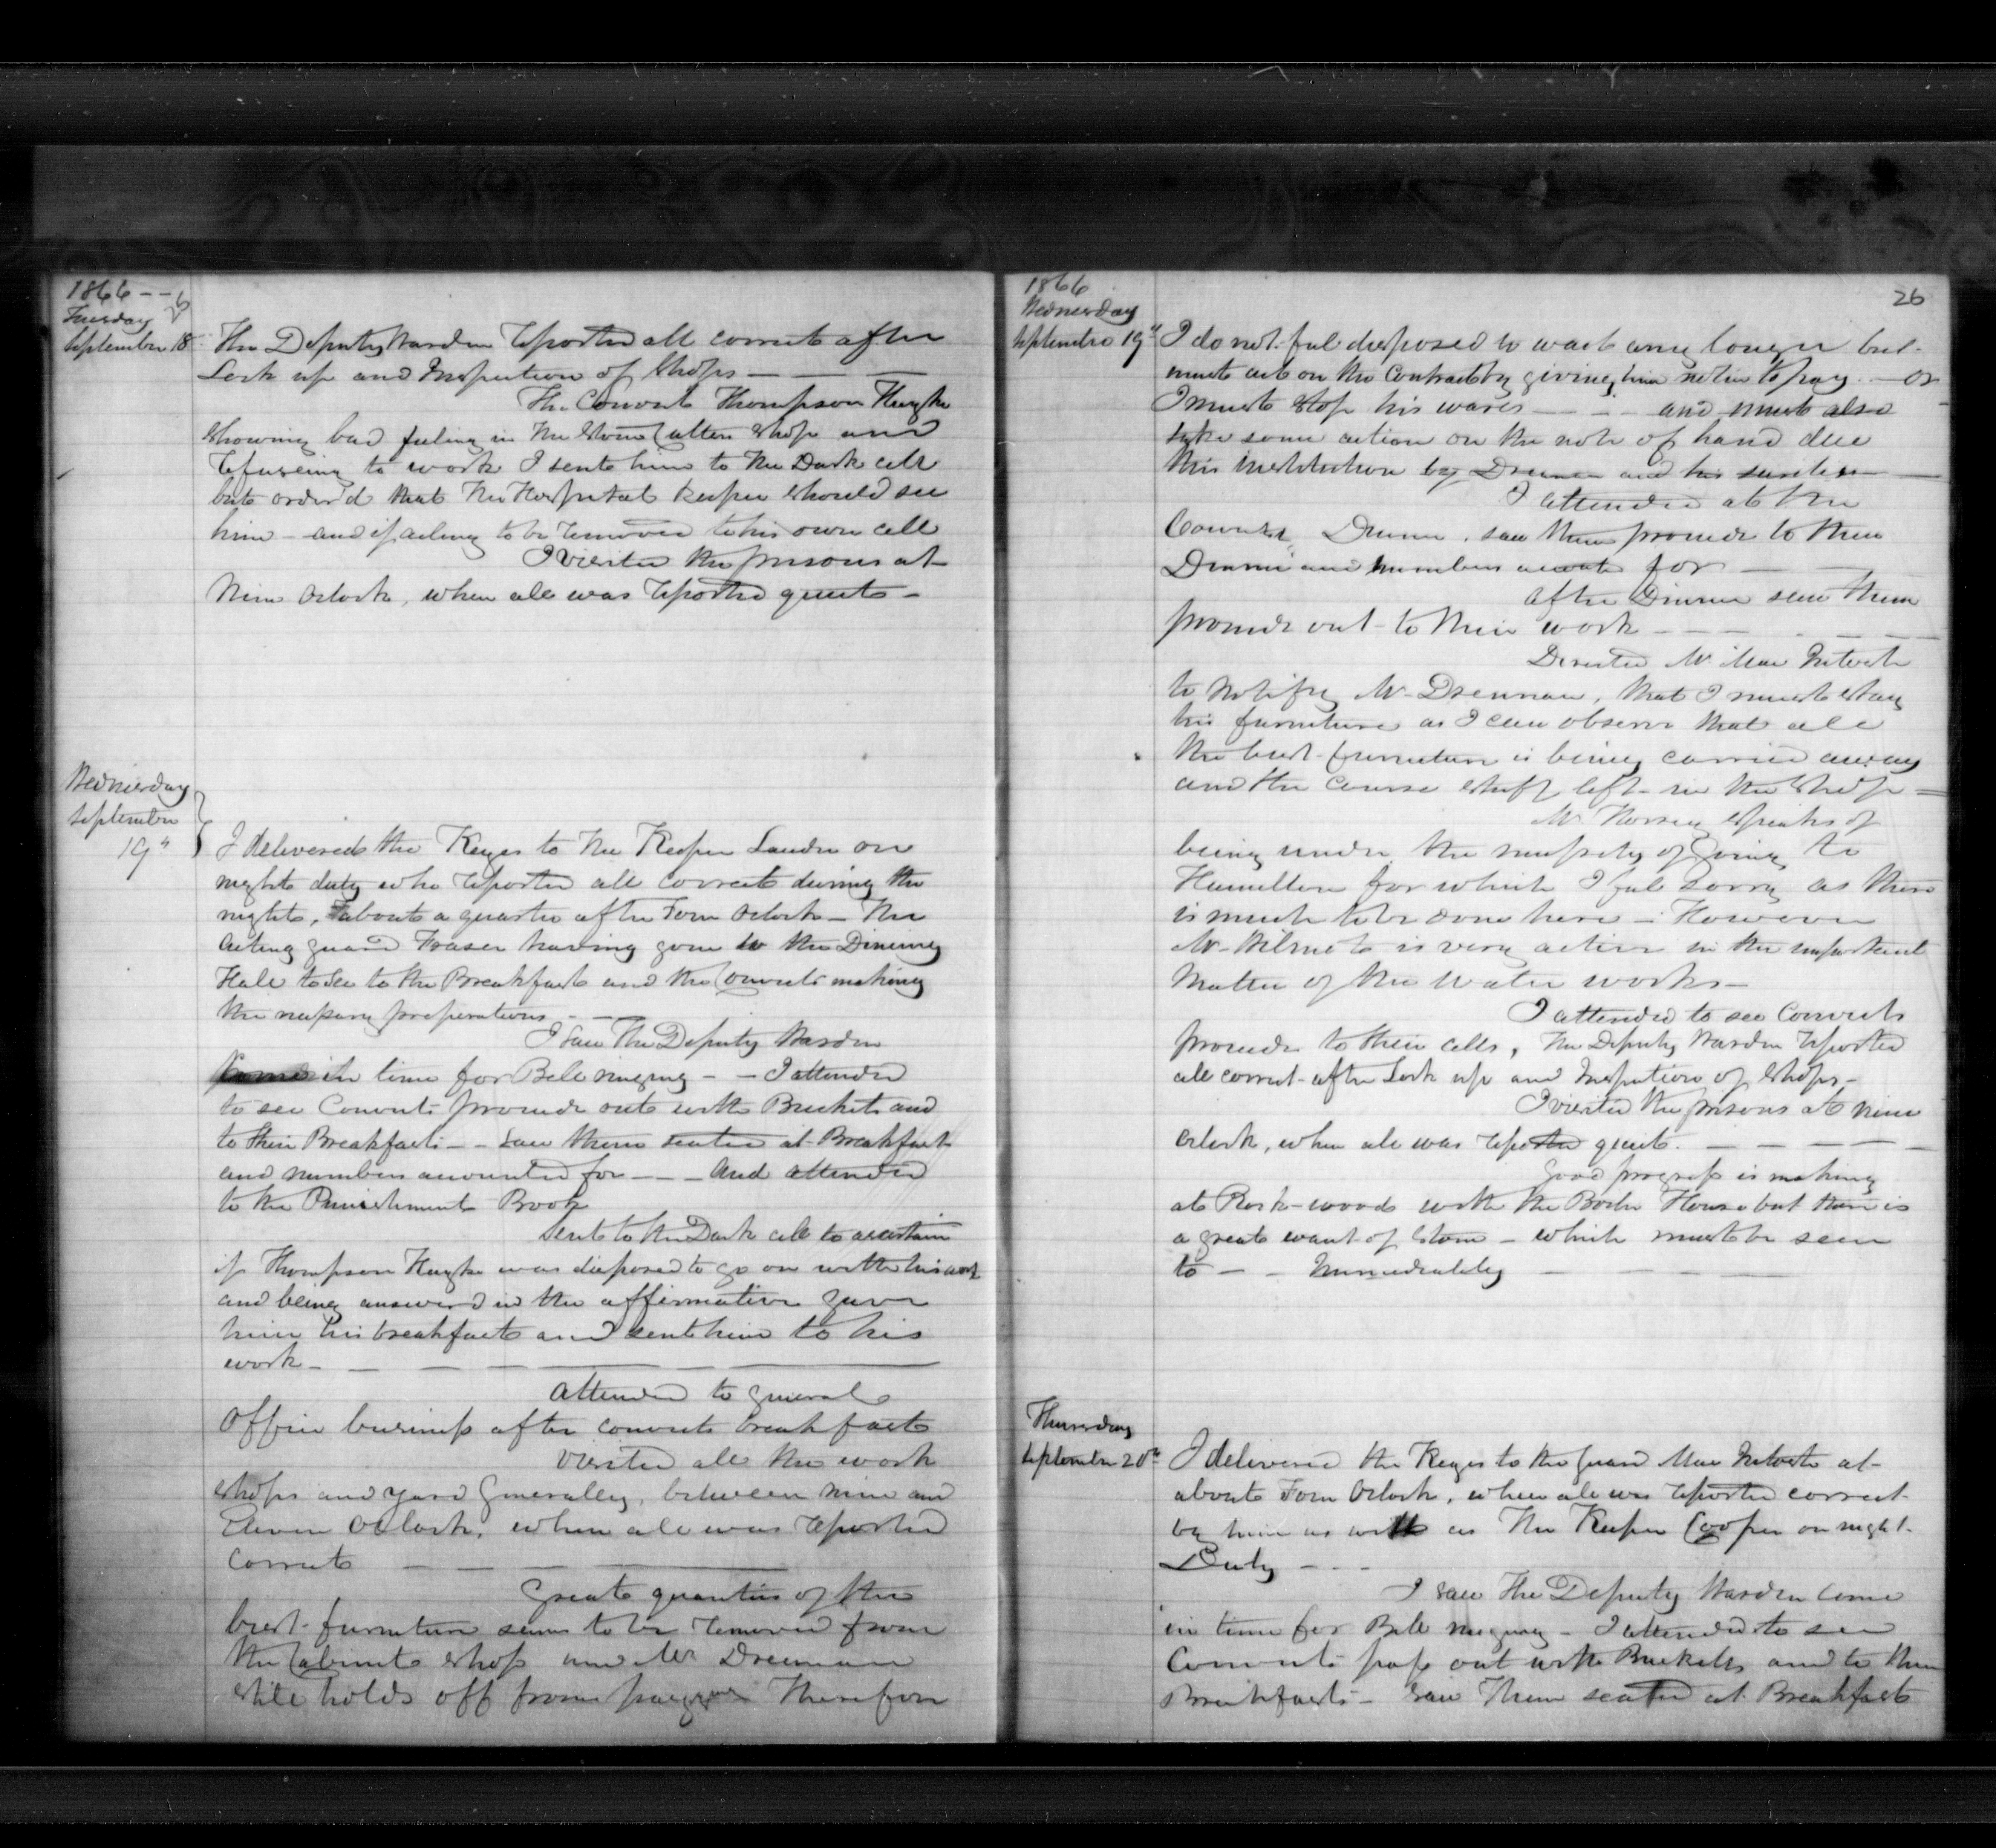 1866 - -
Tuesday
September 18
The Deputy Warden reported all correct after
Lock up and Inspection of Shops - - -
The Convict Thompson
showing bad feeling in the Stone Cutters shop and
refuseing to work I sent him to the Dark cell
but order'd that the Hospital Keeper should see
him - and if aileing to be removed to his own cell
I visited the prisons at
Nine Oclock, when all was reported quiet -
Wednesday
September
19th
I delivered the Keyes to the Keeper Lauder on
night duty who reported all correct during the
night, about a quarter after Four Oclock - The
Acting guard Fraser having gone to the Dineing
Hall to see to the Breakfast and the Convicts making
the necessary preperations - -
I saw The Deputy Warden
in time for Bell ringing - - I attended
to see Convicts proceede out with Buckets and
to their Breakfasts - - saw them seated at Breakfast
and numbers accounted for - - - And attended
to the Punishment Book
Sent to the Dark cell to ascertain
if Thompson was disposed to go on with his work
and being answered in the affirmative gave
him his breakfast and sent him to his
work - - - -
Attended to general
Office business after convicts breakfast
Visited all the work
shops and yard Generalley, between nine and
Eleven Oclock, when all was reported
Correct - - -
Great quantities of the
best furniture seems to be removed from
the Cabinet shop and Mr Drennan
still holds off from paying Therefore
1866
Wednesday
September 19th
26
I do not feel disposed to wait any longer but
must act on the Contract by giveing him notice to pay - or
I must stop his wares - - - and must also
take some action on the note of hand due
this institution by Drennan and his sureties -
I attended at the
Convicts Dinner, saw them proceede to their
Dinner and numbers accounted for -
After Dinner saw them
proceede out to their work - - -
Directed Mr MacIntosh
to notify Mr Drennan, that I must stay
his furniture as I can observe that all
the best furniture is being carried away
and the course stuff left in the shop =
Mr Horsey speaks of
being under the necessity of Going to
Hamilton for which I feel sorry as there
is much to be done here - However
Mr Wilmot is very active in the important
Matter of the Water works -
I attended to see Convicts
proceede to their cells, The Deputy Warden reported
all correct after Lock up and Inspection of Shops -
I visited the prisons at nine
Oclock, when all was reported quiet. - - - -
Good progress is making
at Rock-wood with the Boiler House but there is
a great want of Stone - which must be seen
to - - Immediatley - - -
Thursday
September 20th
I delivered the Keyes to the guard MacIntosh at
about Four Oclock, when all was reported correct
by him as well as The Keeper Cooper on night
Duty - - -
I saw The Deputy Warden come
in time for Bell ringing - I attended to see
Convicts pass out with Buckets and to their
Breakfasts - saw Them seated at Breakfast